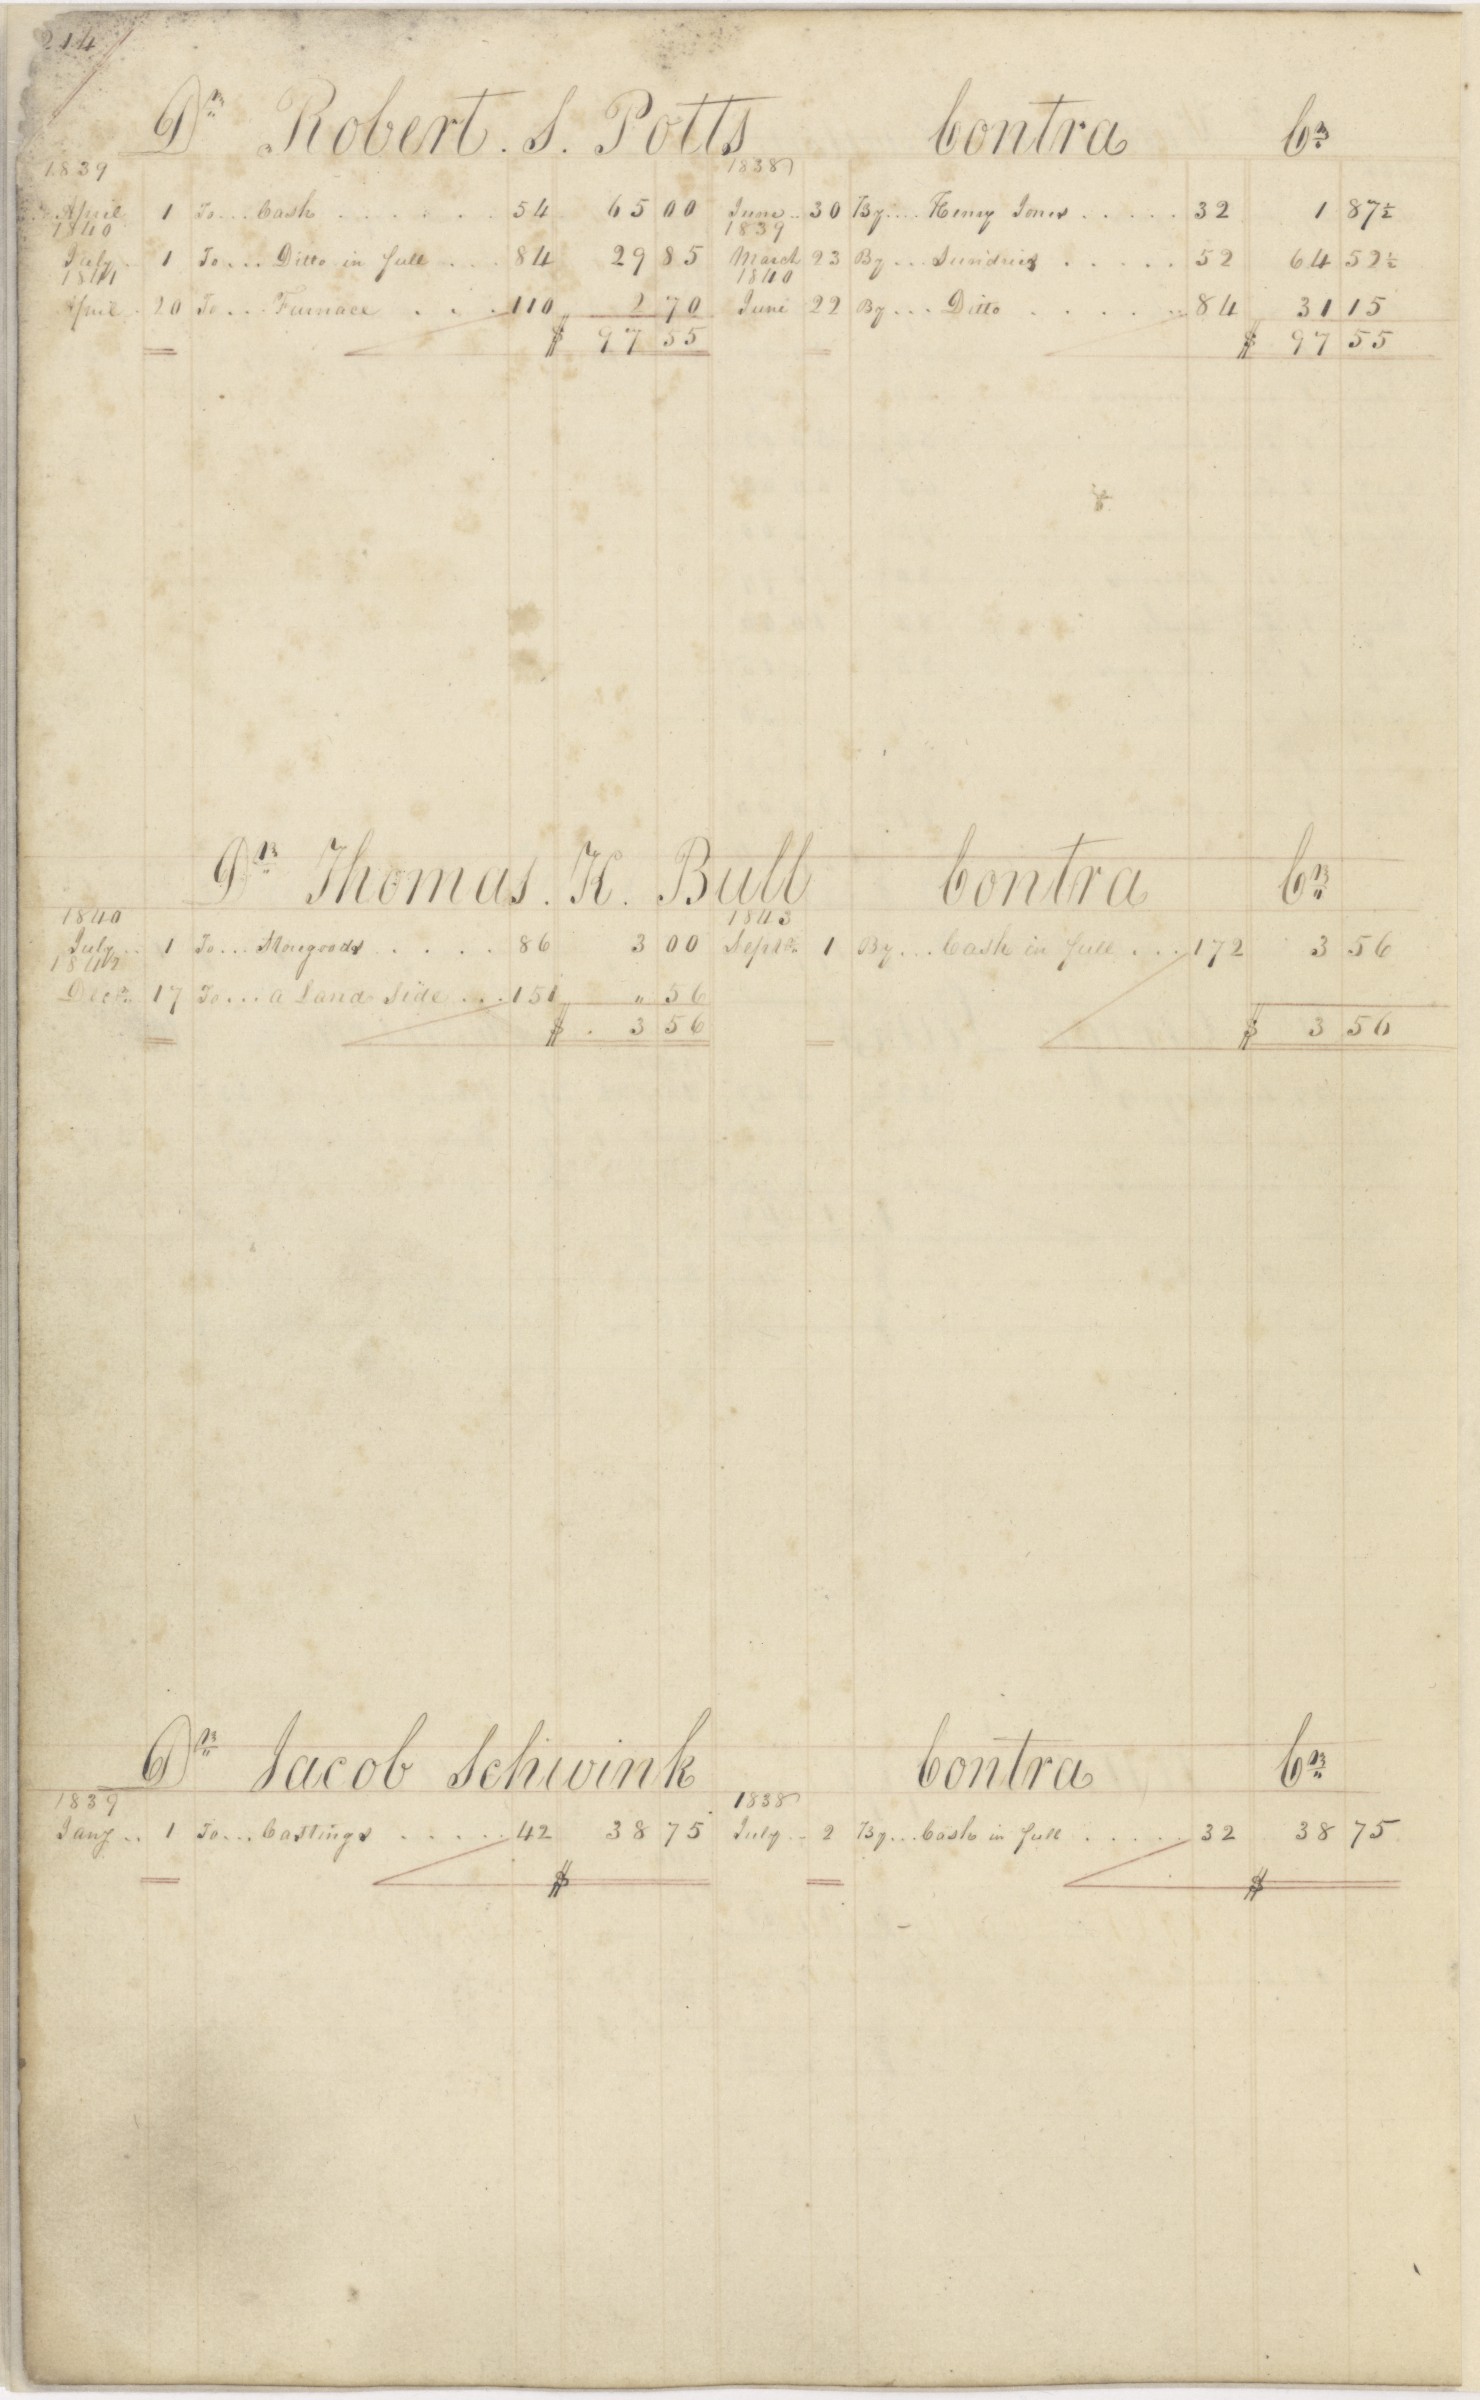 214
Dr Robert. S. Potts Contra Cr
1839 1838
April 1 To... Cash . . . . . . 54 65 00 June .. 30 By.... Henry Jones . . . . . 32 1 87½
1840 1839
July 1 To.... Ditto in full . . . 84 29 85 March 23 By... Sundries . . . . . 52 64 52½
1841 1840
April . 20 To... Furnace . . . 110 2 70 June 22 By... Ditto . . . . . 84 31 15
$ 97 55 $ 97 55
Dr Thomas. K. Bull Contra Cr
1840 1843
July .. 1 To... Stonegoods . . . . . 86 3 00 Septr 1 By... Cash in full . . . 172 3 56
1842
Decr 17 To... a Land Side . . . 151 " 56
$ . 3 56 $ 3 56
Dr Jacob Schwink Contra Cr
1839 1838
Jany .. 1 To... Castings . . . . . 42 38 75 July .. 2 By... Cash in full . . . . . 32 38 75
$ $